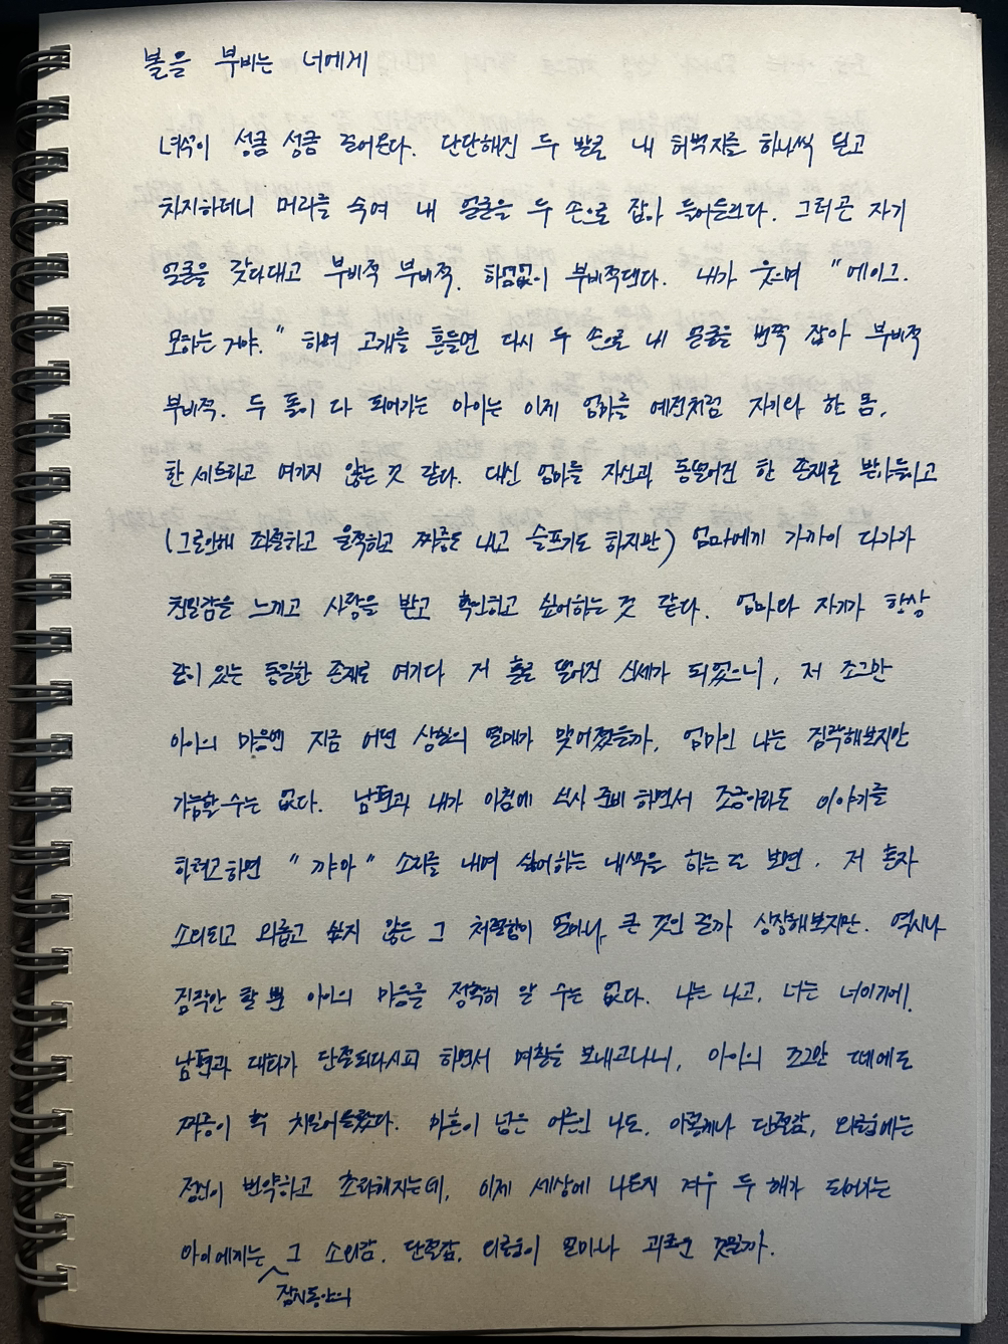 볼을 부비는 너에게
녀석이 성큼 성큼 걸어온다. 단단해진 두 발로 내 허벅지를 하나씩 딛고
차지하더니 머리를 숙여 내 얼굴을 두 손으로 잡아 들어올린다. 그러곤 자기
얼굴을 갖다대고 부비적 부비적. 하염없이 부비적댄다. 내가 웃으며 "에이그.
모하는 거야." 하며 고개를 흔들면 다시 두 손으로 내 얼굴을 번쩍 잡아 부비적
부비적. 두 돌이 다 되어가는 아이는 이제 엄마를 예전처럼 자기와 한 몸,
한 세트라고 여기지 않는 것 같다. 대신 엄마를 자신과 동떨어진 한 존재로 받아들이고
(그로인해 좌절하고 울적하고 짜증도 내고 슬프기도 하지만) 엄마에게 가까이 다가가
친밀감을 느끼고 사랑을 받고 확인하고 싶어하는 것 같다. 엄마와 자기가 항상
같이 있는 동일한 존재로 여기다 저 홀로 떨어진 신세가 되었으니, 저 조그만
아이의 마음엔 지금 어떤 상실의 열매가 맺어졌을까, 엄마인 나는 짐작해보지만
가늠할 수는 없다. 남편과 내가 아침에 식사 준비 하면서 조금이라도 이야기를
하려고하면 "꺄아" 소리를 내며 싫어하는 내색을 하는 걸 보면, 저 혼자
소외되고 외롭고 싶지 않은 그 처절함이 얼마나 큰 것인 걸까 상상해보지만. 역시나
짐작만 할 뿐 아이의 마음을 정확히 알 수는 없다. 나는 나고, 너는 너이기에.
남편과 대화가 단절되다시피 하면서 며칠을 보내고나니, 아이의 조그만 떼에도
짜증이 확 치밀어올랐다. 마흔이 넘은 어른인 나도, 이렇게나 단절감, 외로움에는
정신이 번약하고 초라해지는데, 이제 세상에 나온지 겨우 두 해가 되어가는
아이에게는 잠시동안의 그 소외감, 단절감, 외로움이 얼마나 괴로운 것일까.